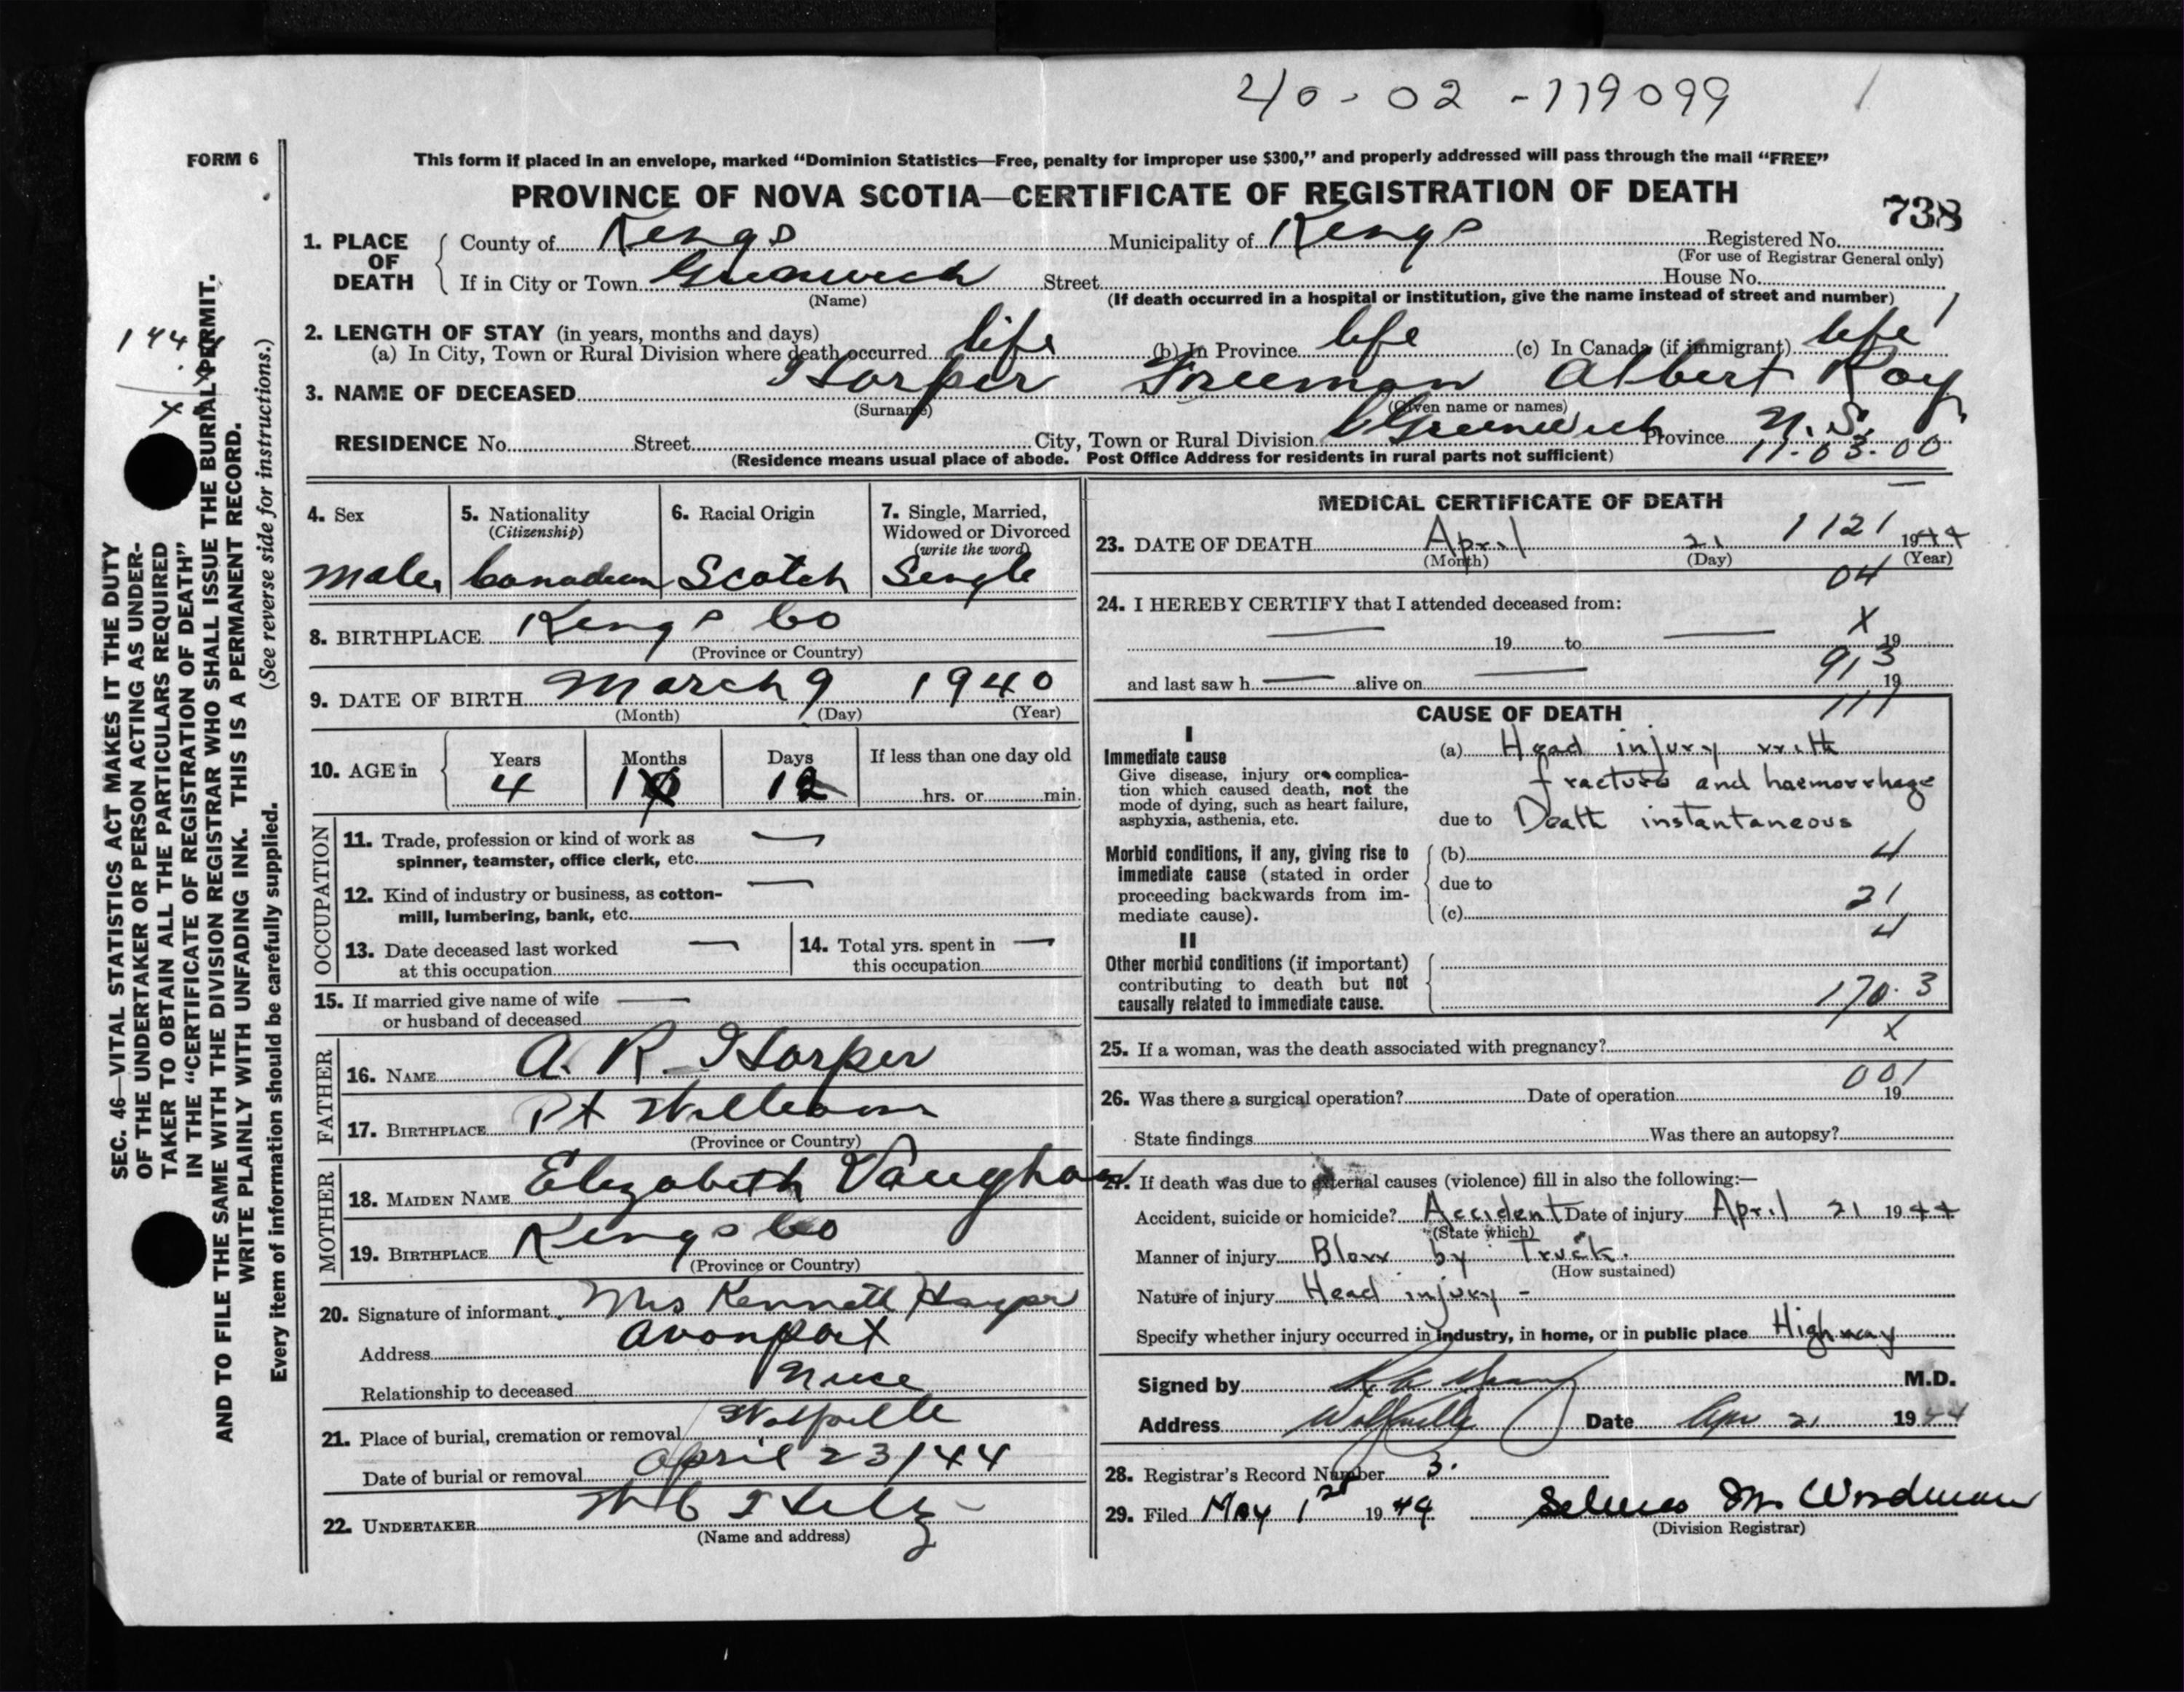 40-02-119099 1
FORM 6
This form if placed in an envelope, marked “Dominion Statistics—Free, penalty for improper use $300,” and properly addressed will pass through the mail “FREE”
PROVINCE OF NOVA SCOTIA—CERTIFICATE OF REGISTRATION OF DEATH
738
1. PLACE OF DEATH
County of Kings Municipality of Kings Registered No.
(For use of Registrar General only)
If in City or Town Greenwich Street House No.
(Name) (If death occurred in a hospital or institution, give the name instead of street and number)
2. LENGTH OF STAY (in years, months and days)
(a) In City, Town or Rural Division where death occurred life (b) In Province life (c) In Canada (if immigrant) life
3. NAME OF DECEASED Harper Freeman Albert Roy
(Surname) (Given name or names)
RESIDENCE No. Street City, Town or Rural Division Greenwich Province N.S.
(Residence means usual place of abode. Post Office Address for residents in rural parts not sufficient) 11-03-00
4. Sex
Male
5. Nationality
(Citizenship)
Canadian
6. Racial Origin
Scotch
7. Single, Married,
Widowed or Divorced
(write the word)
Single
8. BIRTHPLACE Kings Co
(Province or Country)
9. DATE OF BIRTH March 9 1940
(Month) (Day) (Year)
10. AGE in
Years Months Days If less than one day old
4 1 12
hrs. or min.
OCCUPATION
11. Trade, profession or kind of work as
spinner, teamster, office clerk, etc. —
12. Kind of industry or business, as cotton-
mill, lumbering, bank, etc. —
13. Date deceased last worked —
at this occupation
14. Total yrs. spent in —
this occupation
15. If married give name of wife —
or husband of deceased
FATHER
16. NAME A. R Harper
17. BIRTHPLACE Pt Williams
(Province or Country)
MOTHER
18. MAIDEN NAME Elizabeth Vaughan
19. BIRTHPLACE Kings Co
(Province or Country)
20. Signature of informant Mrs Kenneth Harper
Address Avonport
Relationship to deceased Niece
21. Place of burial, cremation or removal Wolfville
Date of burial or removal April 23/44
22. UNDERTAKER
(Name and address)
MEDICAL CERTIFICATE OF DEATH
23. DATE OF DEATH April 21 1121 1944
(Month) (Day) (Year)
04
24. I HEREBY CERTIFY that I attended deceased from:
— 19 to — 19
X
and last saw h — alive on — 19
913
CAUSE OF DEATH
111
I
Immediate cause
Give disease, injury or complica-
tion which caused death, not the
mode of dying, such as heart failure,
asphyxia, asthenia, etc.
(a) Head injury with
fracture and haemorrhage
due to Death instantaneous
Morbid conditions, if any, giving rise to
immediate cause (stated in order
proceeding backwards from im-
mediate cause).
(b) 4
due to
(c) 21
4
II
Other morbid conditions (if important)
contributing to death but not
causally related to immediate cause.
170.3
25. If a woman, was the death associated with pregnancy? X
001
26. Was there a surgical operation? Date of operation 19
State findings Was there an autopsy?
27. If death was due to external causes (violence) fill in also the following:—
Accident, suicide or homicide? Accident Date of injury April 21 1944
(State which)
Manner of injury Blow by Truck.
(How sustained)
Nature of injury Head injury -
Specify whether injury occurred in industry, in home, or in public place Highway
Signed by M.D.
Address Wolfville Date Apr 21 1944
28. Registrar's Record Number 3.
29. Filed May 1st 1944
(Division Registrar)
SEC. 46—VITAL STATISTICS ACT MAKES IT THE DUTY
OF THE UNDERTAKER OR PERSON ACTING AS UNDER-
TAKER TO OBTAIN ALL THE PARTICULARS REQUIRED
IN THE “CERTIFICATE OF REGISTRATION OF DEATH”
AND TO FILE THE SAME WITH THE DIVISION REGISTRAR WHO SHALL ISSUE THE BURIAL PERMIT.
WRITE PLAINLY WITH UNFADING INK. THIS IS A PERMANENT RECORD.
(See reverse side for instructions.)
Every item of information should be carefully supplied.